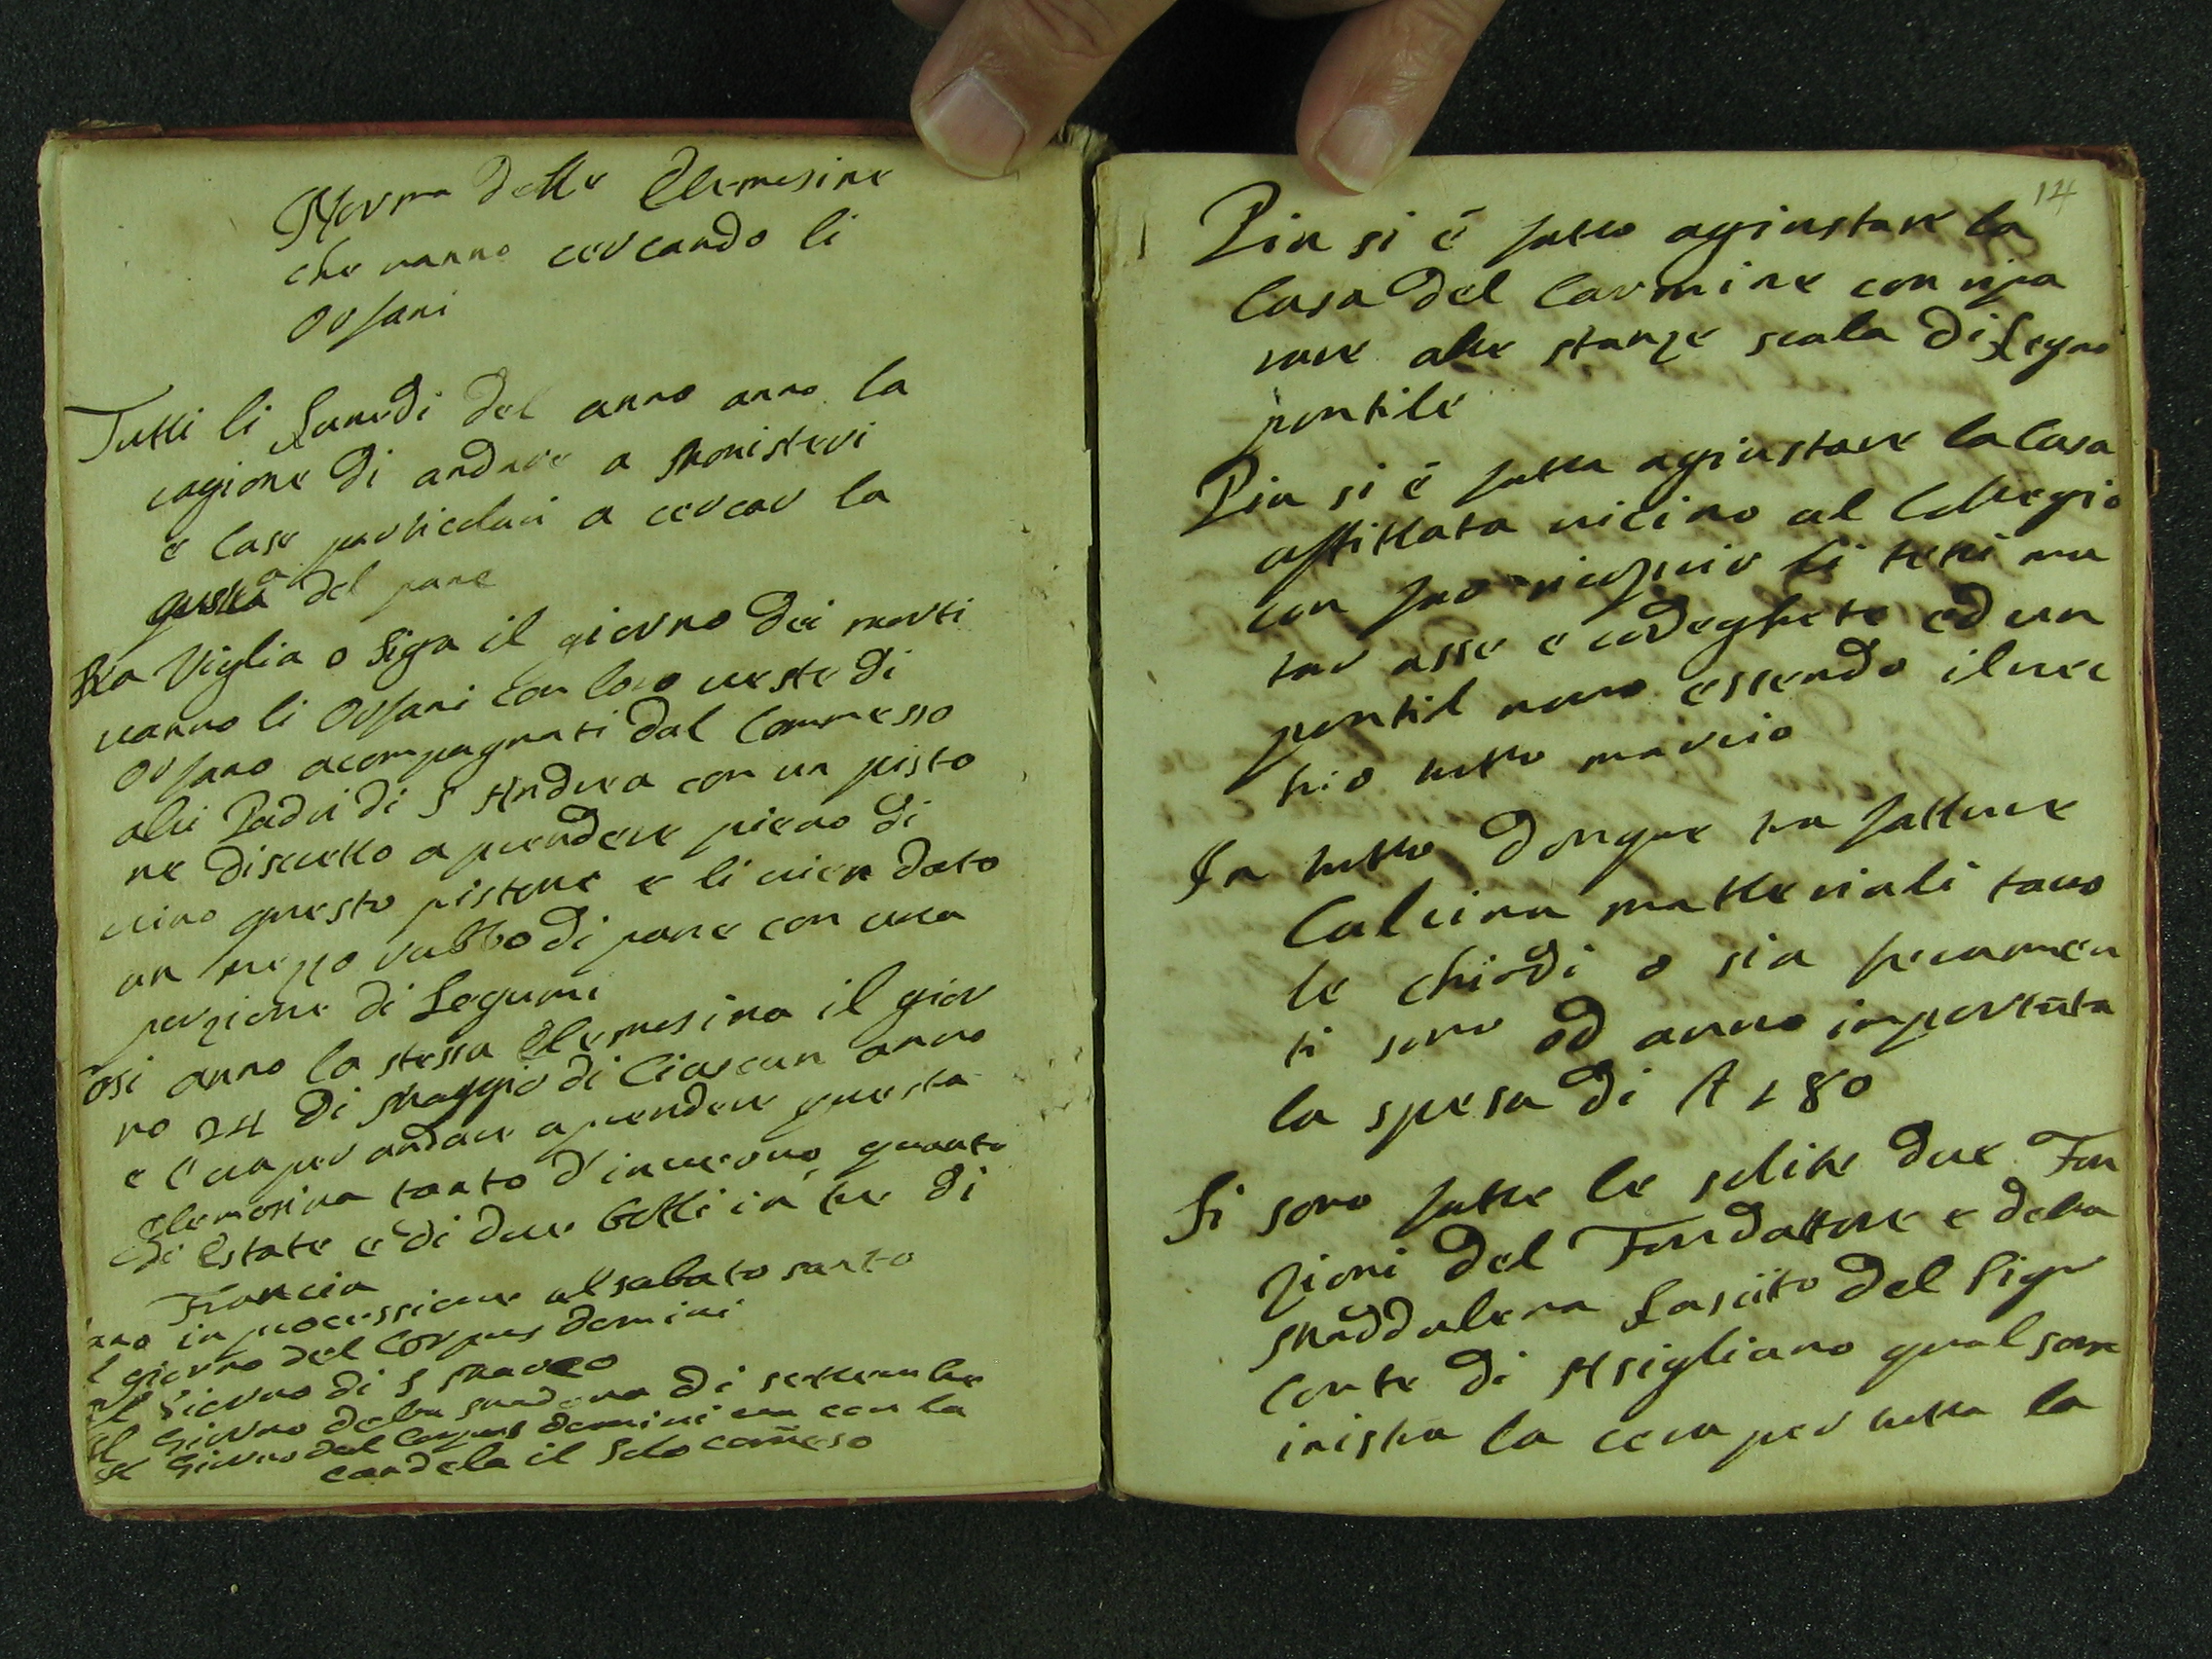 Norma delle Elemosine
che vanno cercando li
Orfani
Tutti li Lunedi del anno anno la
ragione di andare a Monisteri
e Case particolari a cercar la
questa del pane
La Viglia o Siga il giorno dei morti
vanno li Orfani con loro veste di
orfano acompagnati dal Commesso
alli Padri di S Andrea con un pisto
ne discretto a prendere pieno di
vino questo pistone e li vien dato
un mezzo rubbo di pane con una
porzione di Legumi
osi anno la stessa Elemosina il gior
no 24 di Maggio di Ciascun anno
e l'ora per andare a prendere questa
Elemosina tanto d'inverno, quanto
di Estate è di due botti in tre di
Francia
ano in processione al sabato santo
l giorno del Corpus domini
il Giorno di S Marco
il Giorno della madona di settembre
il Giorno del Corpus domini con la
candela il Solo comeso
14
Piu si è fatto agiustare la
Casa del Carmine con ripa
rare alle stanze scala di Legno
pontile
Piu si è fatta agiustare la Casa
affittata vicino al Collegio
con suo ricoprir li tetti mu
tar asse e codeghete ed un
pontil novo essendo il vec
hio tutto marcio
In tutto donque tra fatture
Calcina matteriali tavo
le chiodi o sia feramen
ti sono od anno importata
la spesa di £ 180
Si sono fatte le solite due Fon
zioni del Fondattore e della
Maddalena Lasciito del Sigr
Conte di Asigliano qual som
inistra la cera per tutta la